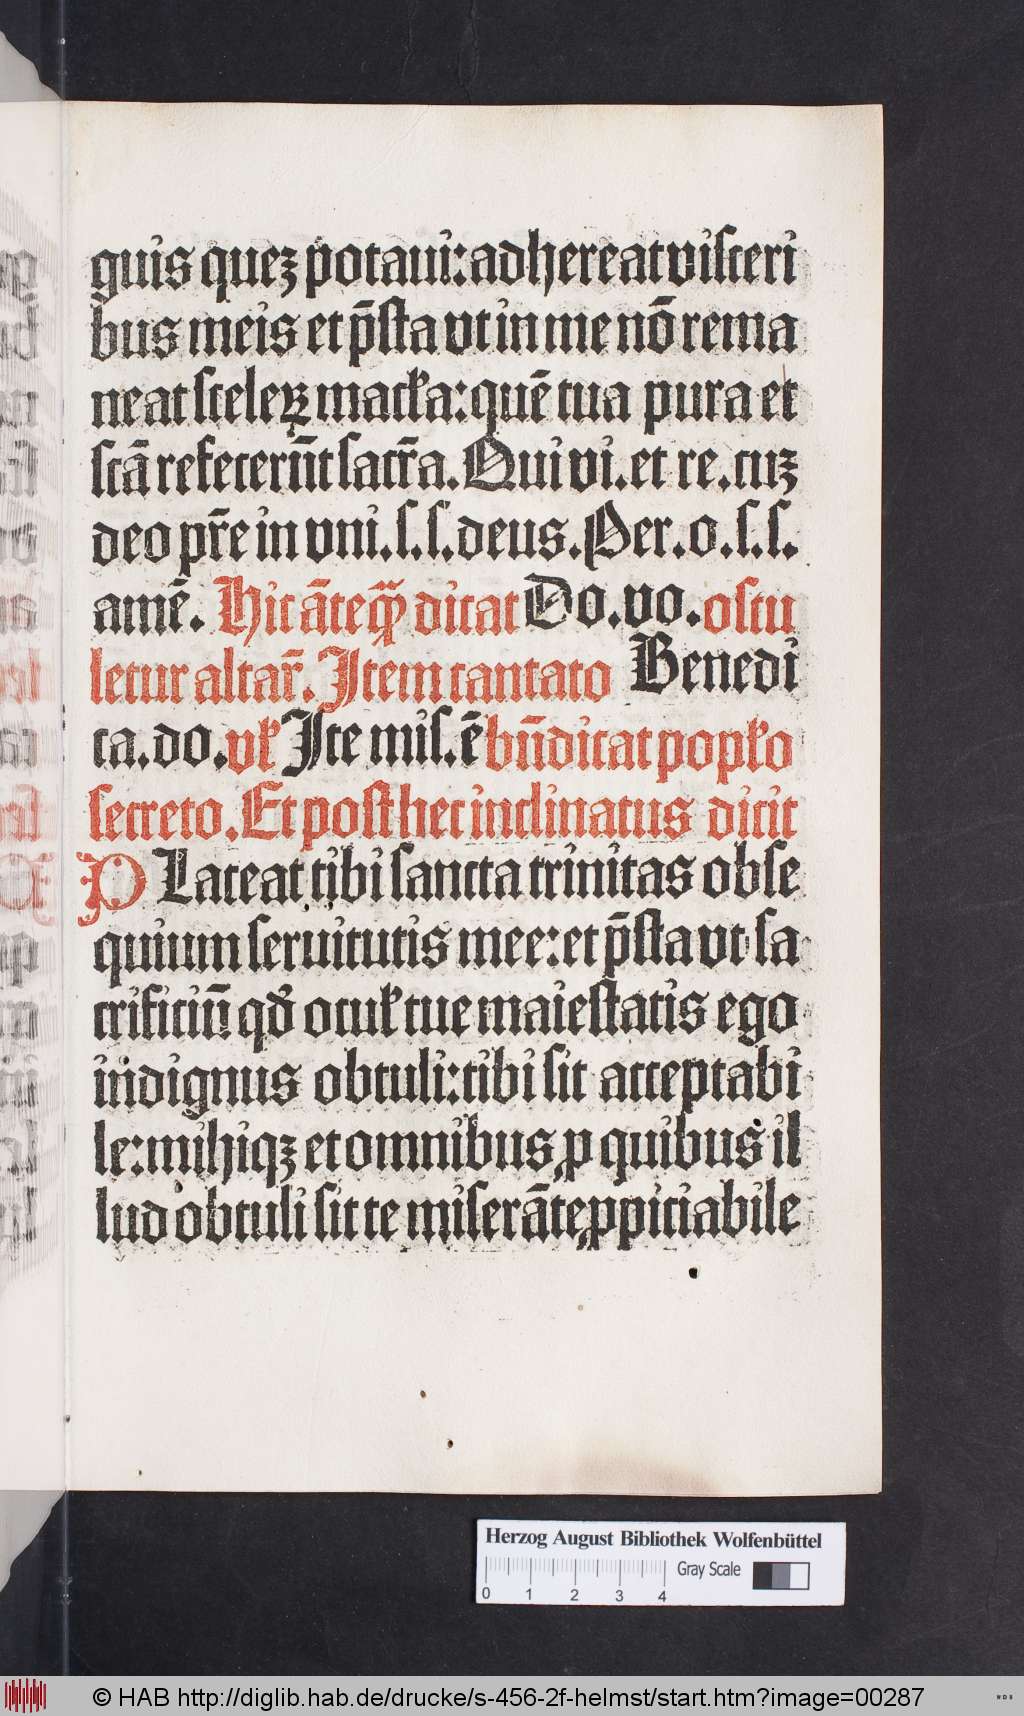 guis queꝫ potaui: adhereat viſceri
bus meis et p̄ſta vt in me nō rema
neat ſceleꝝ macƚa: quē tua pura et
ſcā refecerūt ſacr̄a. Qui vi. et re. cuꝫ
deo pr̄e in vni. ſ. ſ. deus. Per. o. ſ. ſ.
amē. Hic āteqᷓ dicat Do. vo. oſcu
letur altar̄. Item cantato Benedi
ca. do. vƚ Ite miſ. ē bn̄dicat popƚo
ſecreto. Et poſt hec inclinatus dicit
PLaceat tibi ſancta trinitas obſe
quium ſeruitutis mee: et p̄ſta vt ſa
crificiū qď oculƚ tue maieſtatis ego
indignus obtuli: tibi ſit acceptabi
le: mihiqꝫ et omnibus ꝓ quibus il
lud obtuli ſit te miſerāte ꝓpiciabile
Herzog August Bibliothek Wolfenbüttel
Gray Scale
0 1 2 3 4
© HAB http://diglib.hab.de/drucke/s-456-2f-helmst/start.htm?image=00287